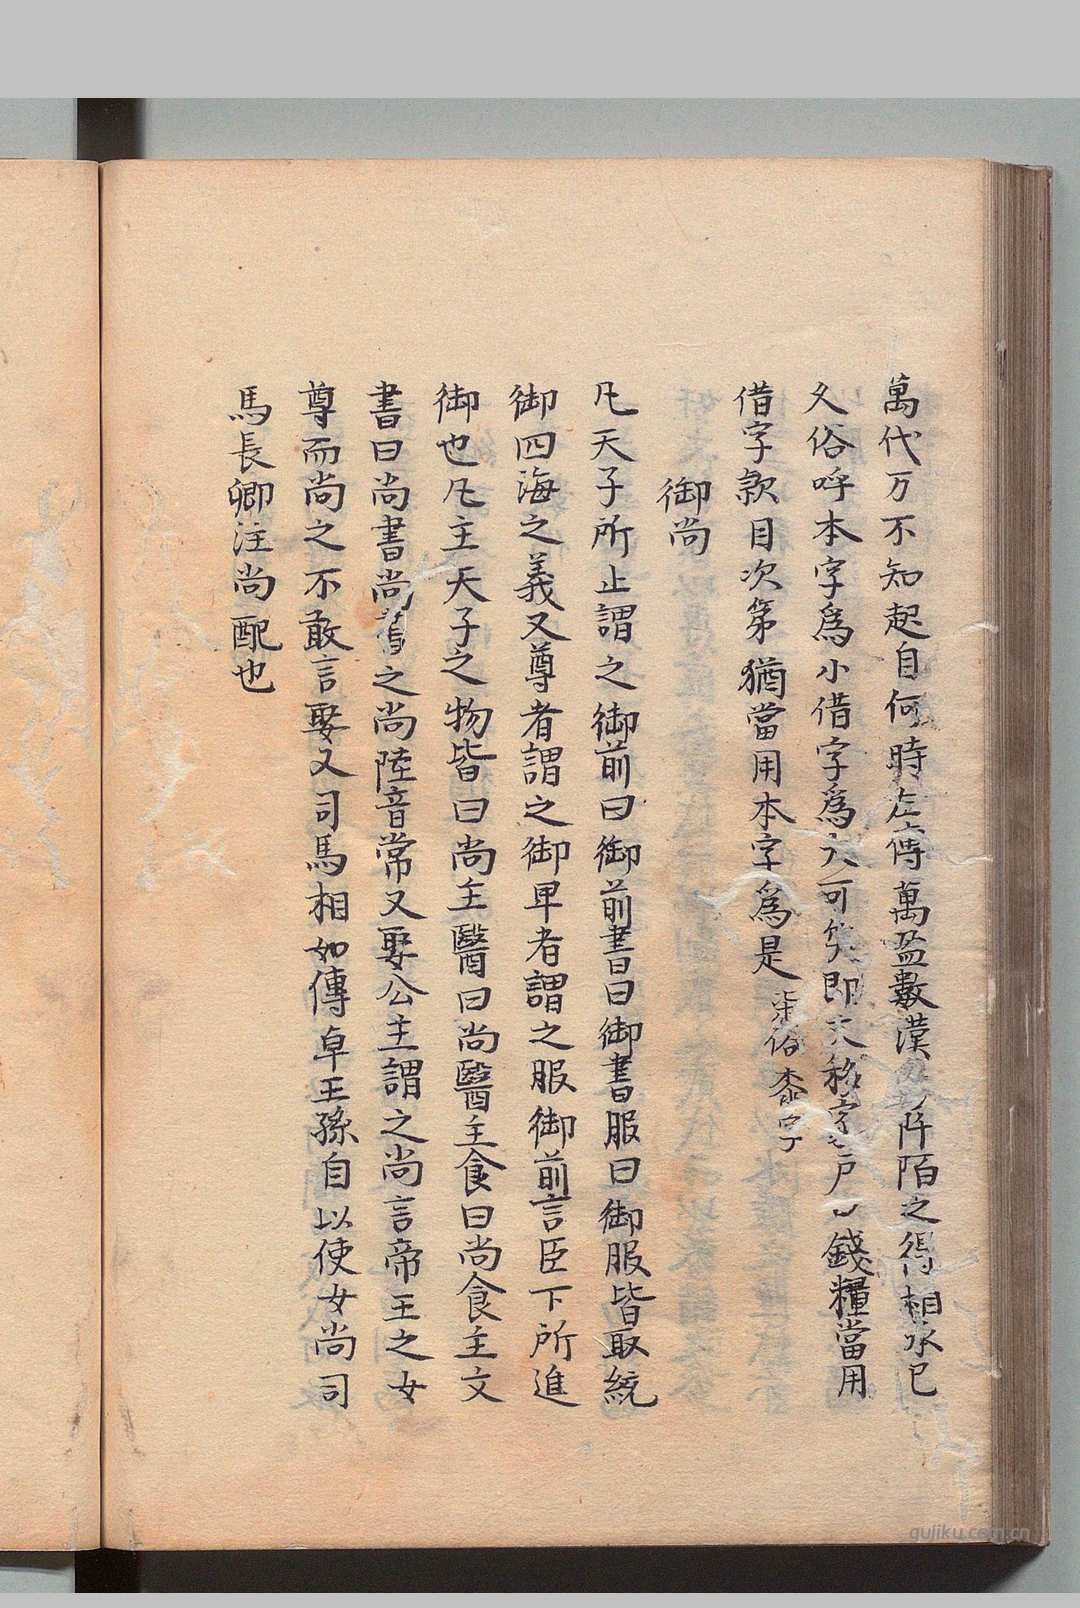 萬代万不知起自何時左傳萬盈數漢阡陌之得相承已
久俗呼本字爲小借字爲大可笑即文移字戶錢糧當用
借字款目次第猶當用本字爲是柒俗桼字
御尚
凡天子所止謂之御前曰御前書曰御書服曰御服皆取統
御四海之義又尊者謂之御卑者謂之服御前言臣下所進
御也凡主天子之物皆曰尚主醫曰尚醫主食曰尚食主文
書曰尚書尚舊之尚陸音常又娶公主謂之尚言帝王之女
尊而尚之不敢言娶又司馬相如傳卓王孫自以使女尚司
馬長卿注尚配也
gujiku.com.cn